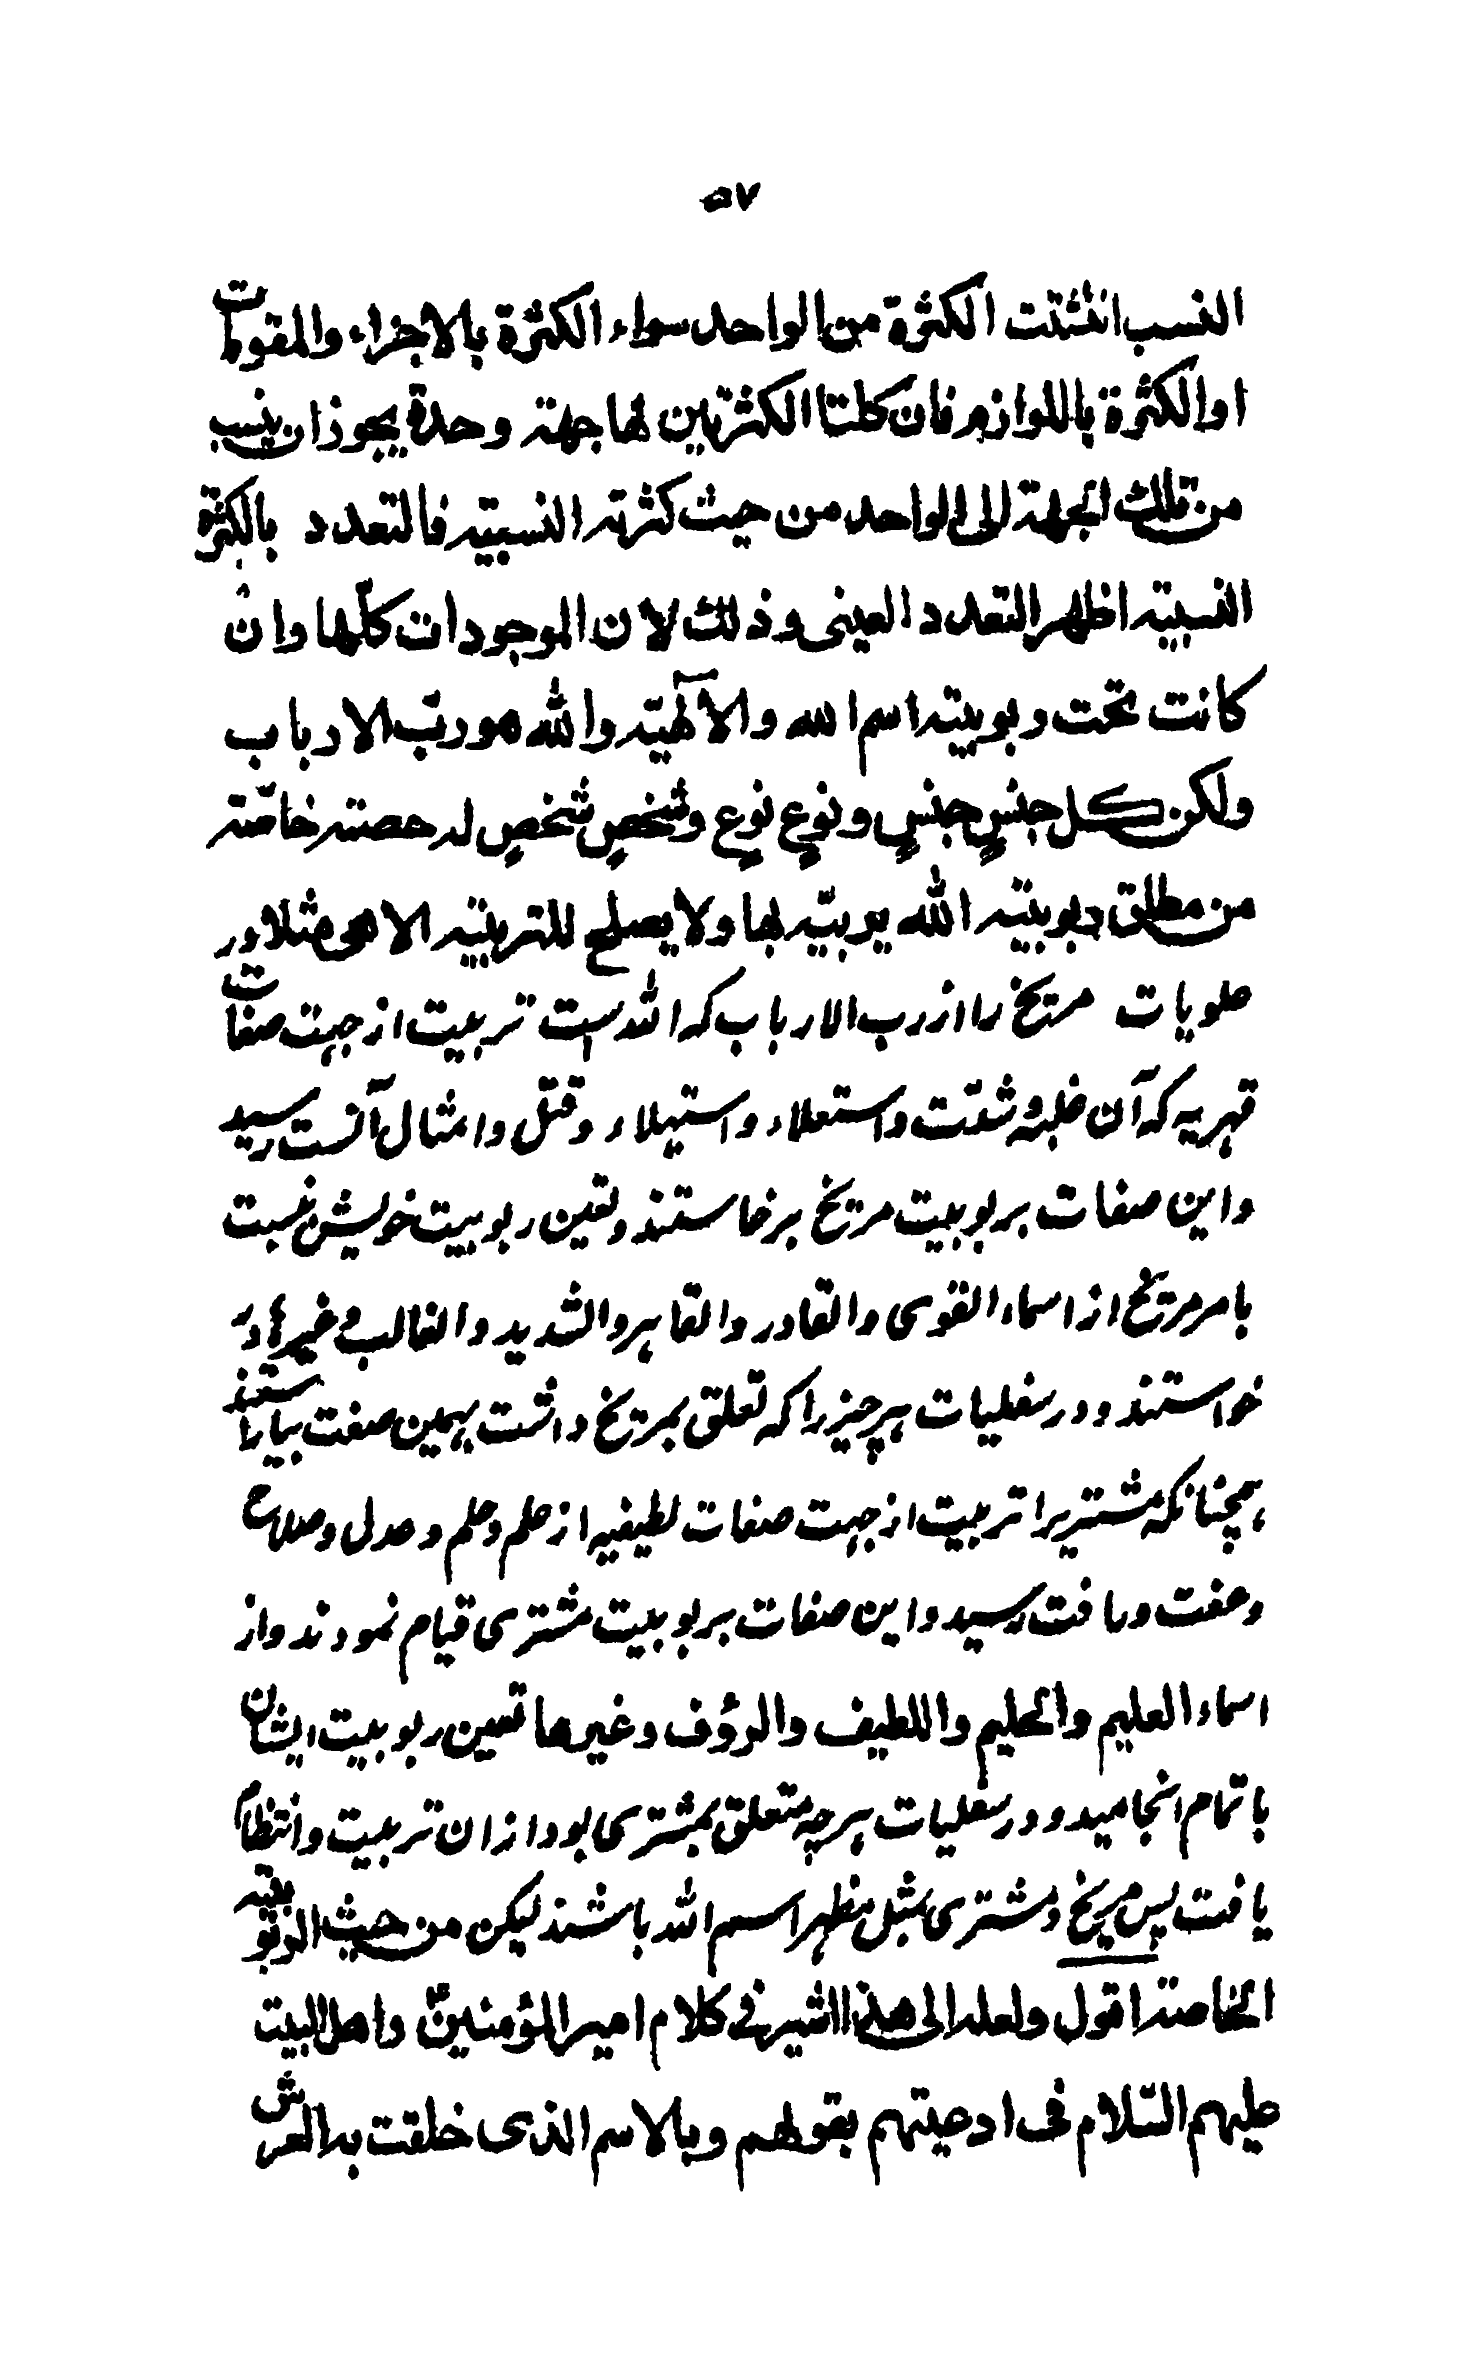 ٥٧
النسب انتشئت الكثرة من الواحد سواء الكثرة بالاجزاء والمقومات
اوالكثرة باللوازم فان كلتا الكثرتين لها جهة وحدة يجوز ان ينسب
من تلك الجهة الى الواحد من حيث كثرته النسبيه فالتعدد بالكثرة
النسبيه اظهر التعدد العينى وذلك لان الموجودات كلّها وان
كانت تحت ربوبيته اسم الله والآلهيّه والله هو ربّ الارباب
ولكن كل جنسٍ جنسٍ ونوعٍ نوعٍ وشخصٍ شخصٍ له حصته خاصّته
من مطلق ربوبيته الله يربيّه بها ولا يصلح للتربيّه الا هى مثلا در
علويات مريخ را از رب الارباب كه الله است تربيت از جهت صفات
قهريه كه آن غلبه و شدّت واستعلاء واستيلاء وقتل وامثال آنست رسيد
واين صفات بربوبيت مريخ برخاستند وتعين ربوبيت خويش نسبت
بامر مريخ از اسماء القوى والقادر والقاهر والشديد والغالب و غيره در
خواستند ودر سفليات هر چيز را كه تعلق بمريخ داشت بهمين صفت بياراستند
همچنانكه مشتريرا تربيت از جهت صفات لطيفيه از علم و حلم و عدل و صلاح
وعفت ورافت رسيد واين صفات بربوبيت مشترى قيام نمودند واز
اسماء العليم والحليم واللطيف والرؤف وغيرها تعين ربوبيت ايشان
باتمام انجاميد ودر سفليات هرچه متعلق بمشترى بود از ان تربيت وانتظام
يافت پس مريخ و مشترى بمثل مظهر اسم الله باشند ليكن من حيث الربوبيّه
الخاصته اقول ولعله الى هذا اشير في كلام امير المؤمنينؑ واهل البيت
عليهم السّلام فى ادعيتهم بقولهم وبالاسم الذى خلقت به العرش